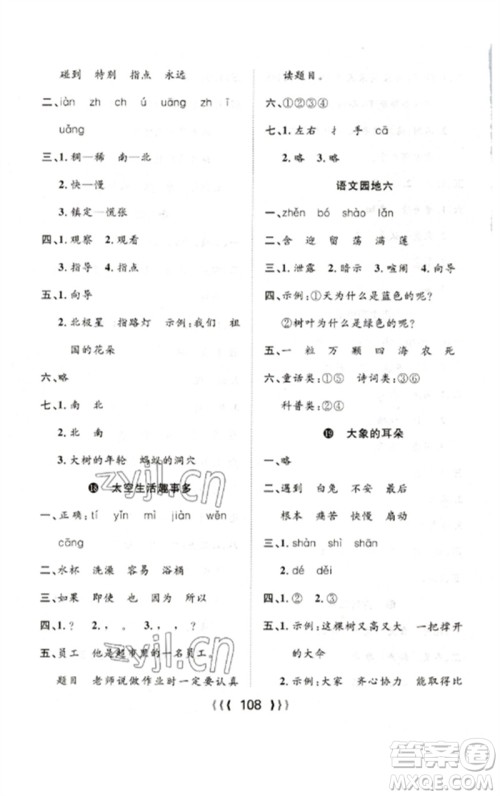 碰到 特别 指点 永远
二、iàn zh ch ú uāng zh ī
uǎng
三、1.稠—稀 南—北
2.快—慢
3.镇定—慌张
四、1.观察 2.观看
3.指导 4.指点
五、1.向导
2.北极星 指路灯 示例:我们 祖
国的花朵
六、略
七、1.南 北
2.北 南
3.大树的年轮 蚂蚁的洞穴
⑱ 太空生活趣事多
一、正确:tí yǐn mì jiàn wěn
cāng
二、水杯 洗澡 容易 浴桶
三、如果 即使 也 因为 所以
四、1.? 2.,。 3.,。
五、员工 他是超市里的一名员工。
题目 老师说做作业时一定要认真
读题目。
六、①②③④
七、1.左右 扌 手 cā
2.略 3.略
语文园地六
一、zhěn bó shào lǎn
二、含 迎 留 荡 满 莲
三、1.泄露 2.暗示 3.喧闹 4.向导
四、示例:①天为什么是蓝色的呢?
②树叶为什么是绿色的呢?
五、一 粒 万 颗 四 海 农 死
六、童话类:①⑤ 诗词类:③⑥
科普类:②④
⑲ 大象的耳朵
一、略
二、遇到 白兔 不安 最后
根本 痛苦 快慢 扇动
三、1.shàn shì shān
2.dé děi
四、1.。 2.? 3.!
五、1.示例:这棵树又高又大 一把撑开
的大伞
2.示例:大家 齐心协力 能取得
108
zyjl.cn
答案圈